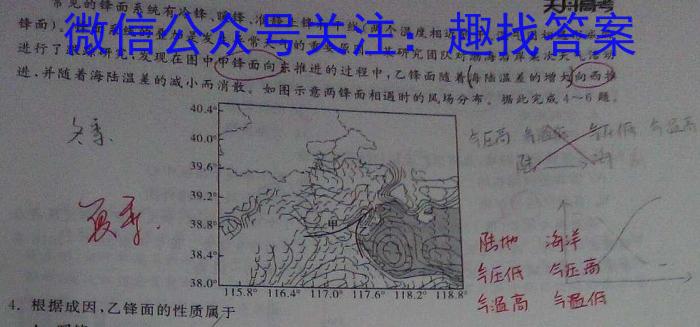 常见的锋面系统有冷锋、暖锋、准
天一高考
锋面)
微信公众号关注：趣找答案
进行了
研究,发现在图中甲锋面向东推进的过程中,乙锋面随着(海陆温差的增大)向西推
进,并随着海陆温差的减小而消散。如图示意两锋面相遇时的风场分布。据此完成4~6题。
冬季.
夏季.
40.4°
40.0°
39.6°
39.2°
38.8°
38.4°
38.0°
甲
115.8° 116.4° 117.0° 117.6° 118.2° 118.8°
气压高 气温低 气压低 气温高
陆 海
陆地 海洋
气压低 气压高
气温高 气温低
4. 根据成因,乙锋面的性质属于